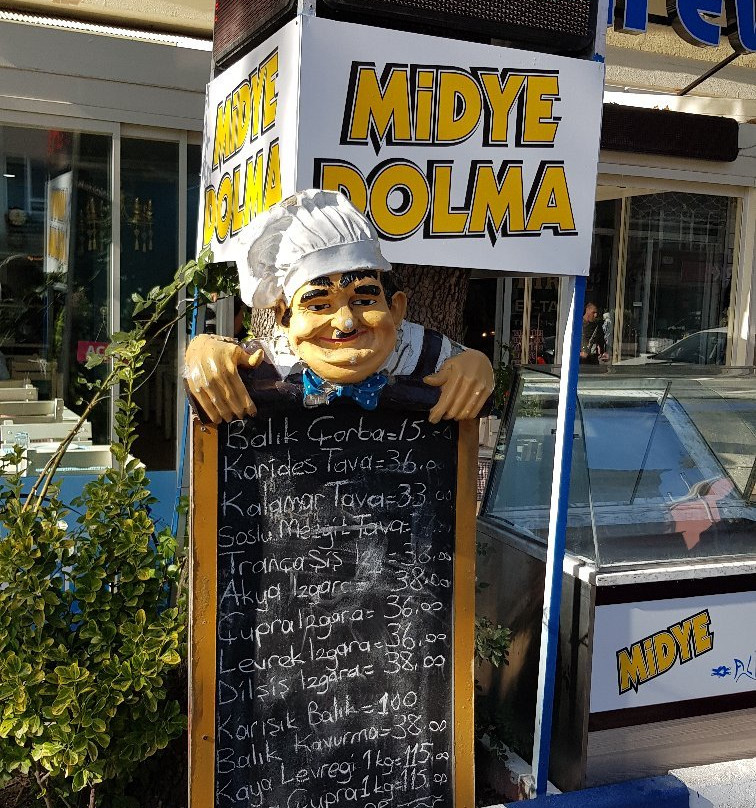 MiDYE
DOLMA
MiDYE
DOLMA
Balık Çorba=15.00
Karides Tava=36.00
Kalamar Tava=33.00
Soslu Mezgit Tava=
Trança Şiş = 38.00
Akya Izgara = 38.00
Çupra Izgara= 36.00
Levrek Izgara= 36.00
Dilşiş Izgara= 38.00
Karışık Balık=100
Balık Kavurma=38.00
Kaya Levreği 1kg=115.00
Çupra 1kg=115.00
MiDYE